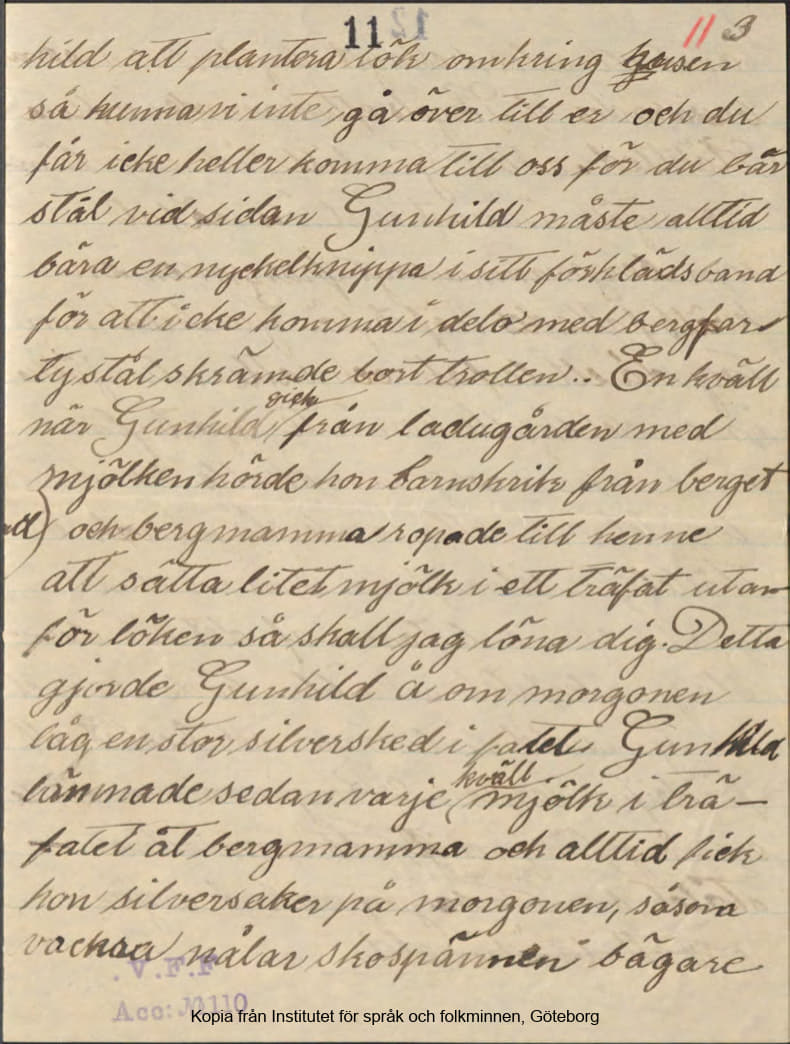 11 12 11 3
hild att plantera lök omkring husen
så kunna vi inte gå över till er och du
får icke heller komma till oss för du bär
stål vid sidan Gunhild måste alltid
bära en nyckelknippa i sitt förklädsband
för att icke komma i delo med bergfar
ty stål skrämde bort trollen.. En kväll
när Gunhild gick från ladugården med
mjölken hörde hon barnskrik från berget
och bergmamma ropade till henne
att sätta litet mjölk i ett träfat utan-
för löken så skall jag löna dig. Detta
gjorde Gunhild å om morgonen
låg en stor silversked i fatet. Gunhild
lämnade sedan varje kväll mjölk i trä-
fatet åt bergmamma och alltid fick
hon silversaker på morgonen, såsom
vackra nålar skospännen bägare
. V.F.F
Acc: 
Kopia från Institutet för språk och folkminnen, Göteborg